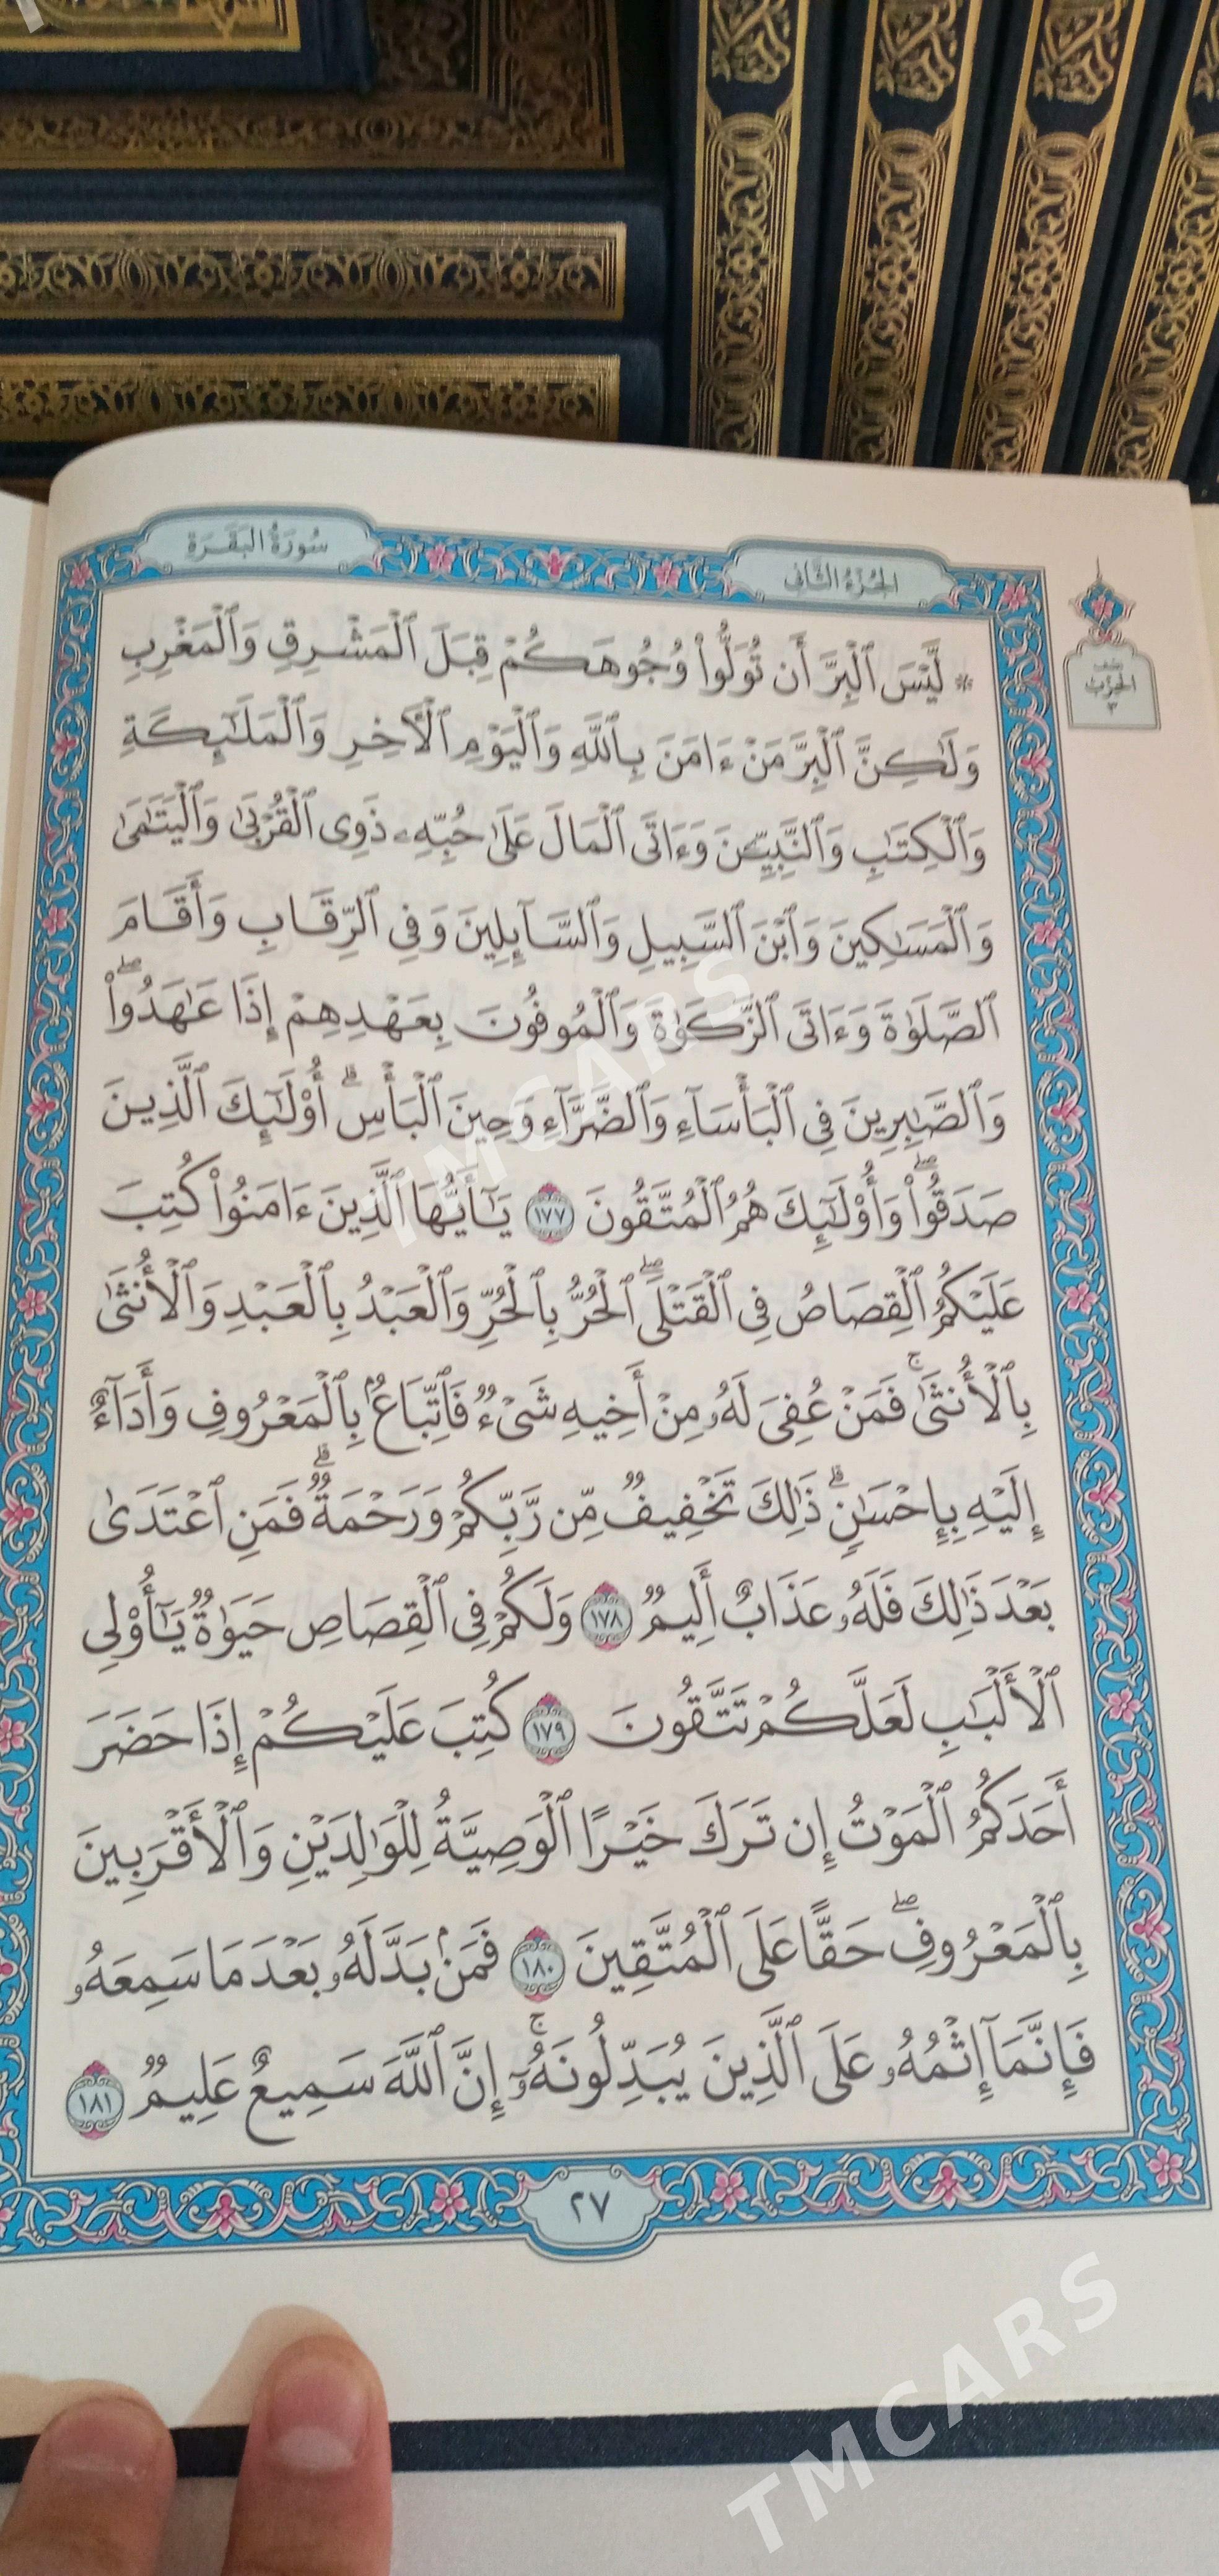 سُورَةُ البَقَرَةِ
الجُزْءُ الثَّانِي
نصف
الحِزْب
٣
* لَّيْسَ ٱلْبِرَّ أَن تُوَلُّوا۟ وُجُوهَكُمْ قِبَلَ ٱلْمَشْرِقِ وَٱلْمَغْرِبِ
وَلَٰكِنَّ ٱلْبِرَّ مَنْ ءَامَنَ بِٱللَّهِ وَٱلْيَوْمِ ٱلْأَخِرِ وَٱلْمَلَٰٓئِكَةِ
وَٱلْكِتَٰبِ وَٱلنَّبِيِّـۧنَ وَءَاتَى ٱلْمَالَ عَلَىٰ حُبِّهِۦ ذَوِى ٱلْقُرْبَىٰ وَٱلْيَتَٰمَىٰ
وَٱلْمَسَٰكِينَ وَٱبْنَ ٱلسَّبِيلِ وَٱلسَّآئِلِينَ وَفِى ٱلرِّقَابِ وَأَقَامَ
ٱلصَّلَوٰةَ وَءَاتَى ٱلزَّكَوٰةَ وَٱلْمُوفُونَ بِعَهْدِهِمْ إِذَا عَٰهَدُوا۟ۖ
وَٱلصَّٰبِرِينَ فِى ٱلْبَأْسَآءِ وَٱلضَّرَّآءِ وَحِينَ ٱلْبَأْسِۗ أُو۟لَٰٓئِكَ ٱلَّذِينَ
صَدَقُوا۟ۖ وَأُو۟لَٰٓئِكَ هُمُ ٱلْمُتَّقُونَ ١٧٧ يَٰٓأَيُّهَا ٱلَّذِينَ ءَامَنُوا۟ كُتِبَ
عَلَيْكُمُ ٱلْقِصَاصُ فِى ٱلْقَتْلَىۖ ٱلْحُرُّ بِٱلْحُرِّ وَٱلْعَبْدُ بِٱلْعَبْدِ وَٱلْأُنثَىٰ
بِٱلْأُنثَىٰۚ فَمَنْ عُفِىَ لَهُۥ مِنْ أَخِيهِ شَىْءٌ فَٱتِّبَاعٌۢ بِٱلْمَعْرُوفِ وَأَدَآءٌ
إِلَيْهِ بِإِحْسَٰنٍۗ ذَٰلِكَ تَخْفِيفٌ مِّن رَّبِّكُمْ وَرَحْمَةٌۗ فَمَنِ ٱعْتَدَىٰ
بَعْدَ ذَٰلِكَ فَلَهُۥ عَذَابٌ أَلِيمٌ ١٧٨ وَلَكُمْ فِى ٱلْقِصَاصِ حَيَوٰةٌ يَٰٓأُو۟لِى
ٱلْأَلْبَٰبِ لَعَلَّكُمْ تَتَّقُونَ ١٧٩ كُتِبَ عَلَيْكُمْ إِذَا حَضَرَ
أَحَدَكُمُ ٱلْمَوْتُ إِن تَرَكَ خَيْرًا ٱلْوَصِيَّةُ لِلْوَٰلِدَيْنِ وَٱلْأَقْرَبِينَ
بِٱلْمَعْرُوفِۖ حَقًّا عَلَى ٱلْمُتَّقِينَ ١٨٠ فَمَنۢ بَدَّلَهُۥ بَعْدَ مَا سَمِعَهُۥ
فَإِنَّمَآ إِثْمُهُۥ عَلَى ٱلَّذِينَ يُبَدِّلُونَهُۥٓۚ إِنَّ ٱللَّهَ سَمِيعٌ عَلِيمٌ ١٨١
٢٧
TMCARS
TMCARS